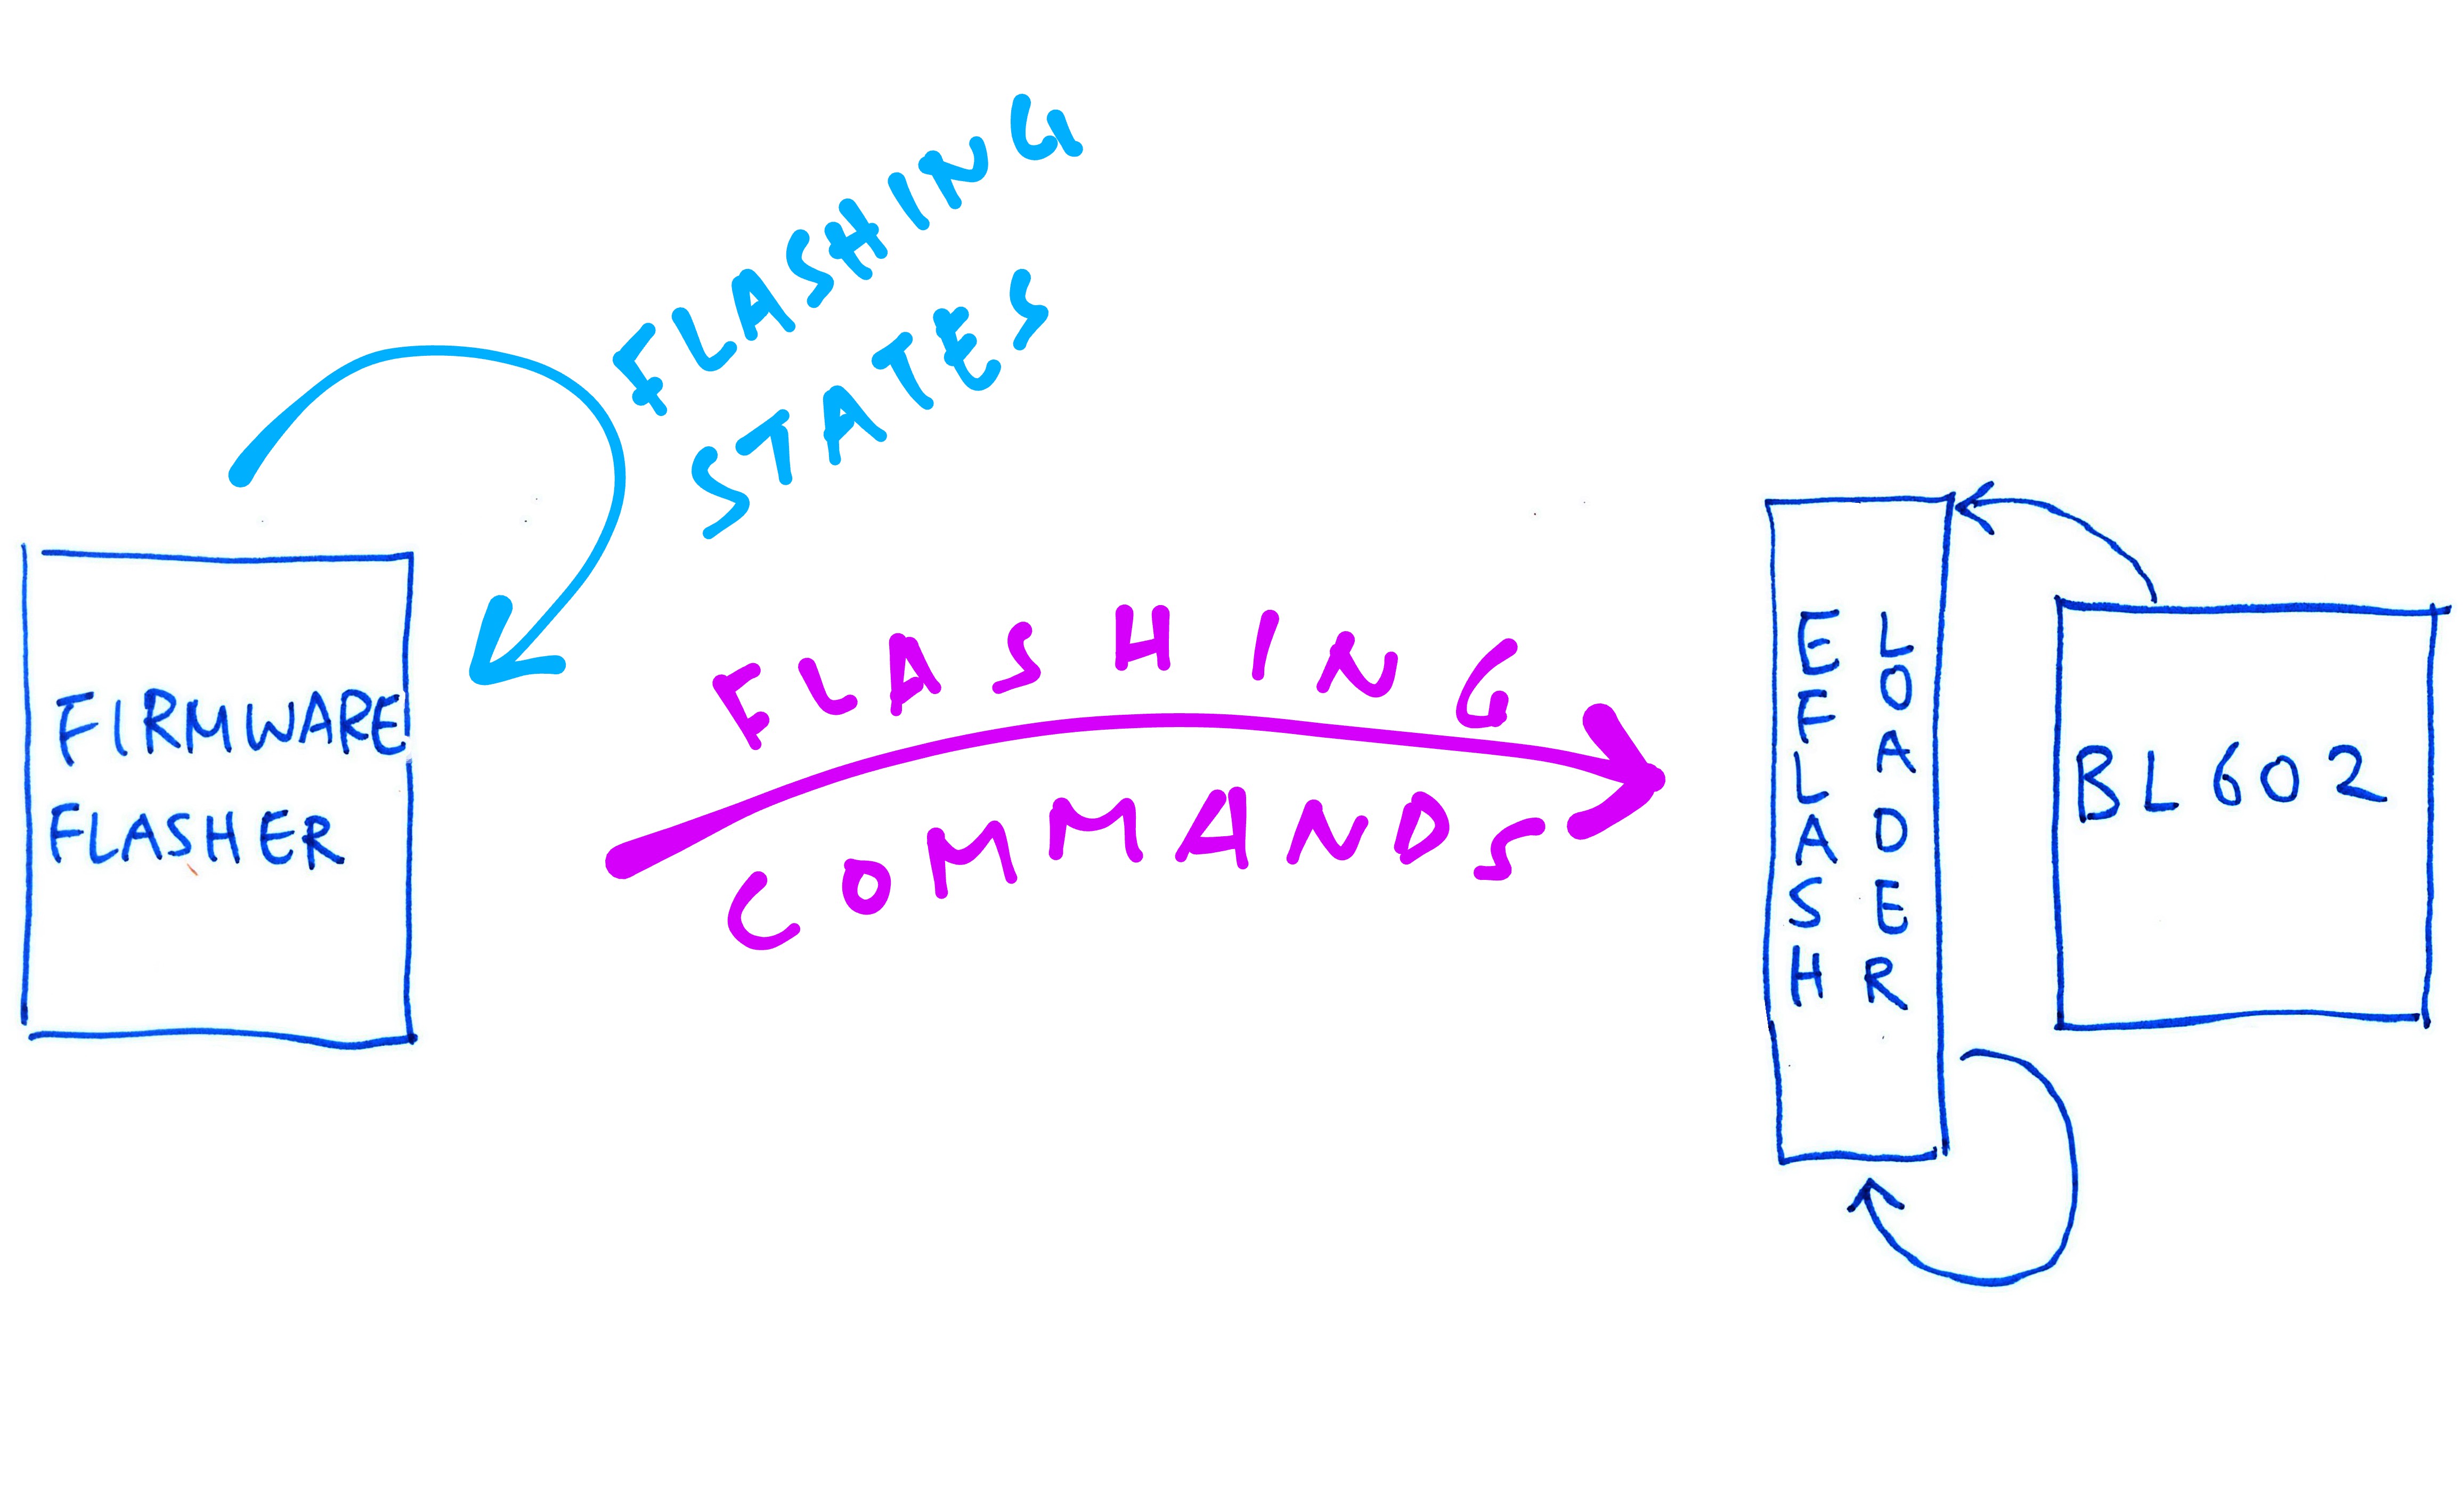 FLASHING
STATES
FIRMWARE
FLASHER
FLASHING
COMMANDS
EFLASH
LOADER
BL602